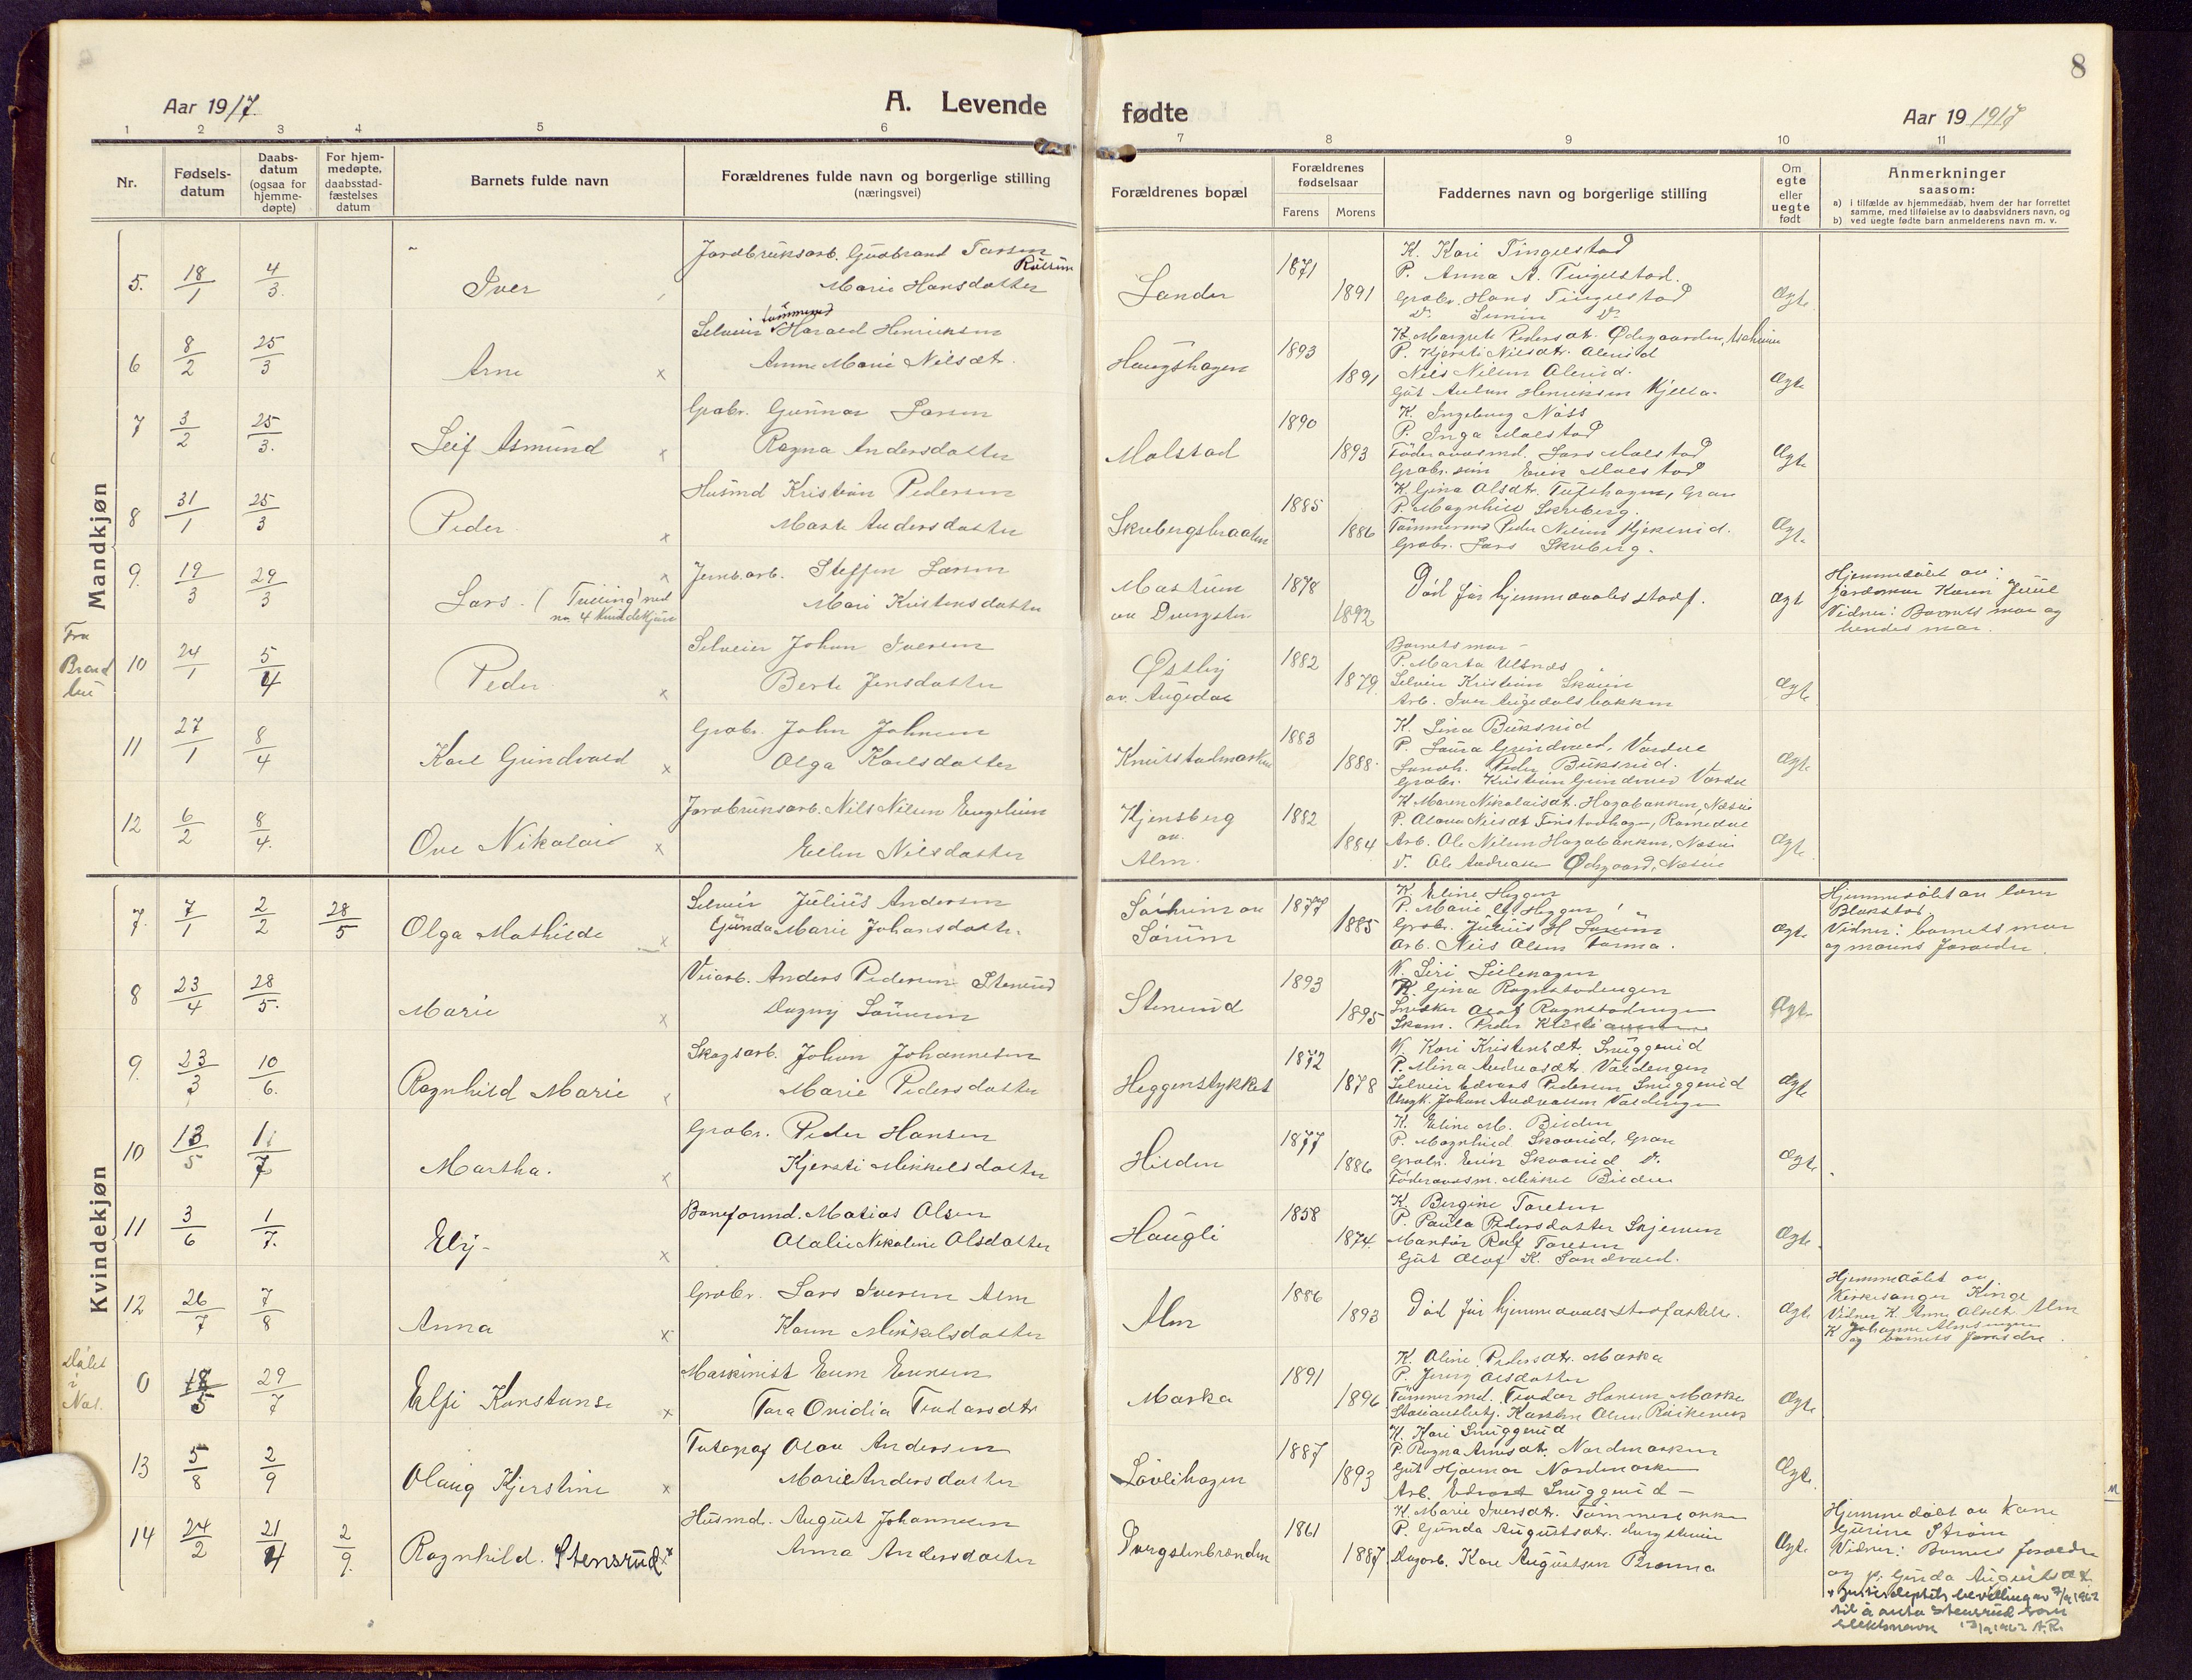 8
Aar 1917.
A. Levende
fødte
Aar 19 1917
1 2 3 4 5 6 7 8 9 10 11
Nr.
Fødsels-
datum
Daabs-
datum
(ogsaa for
hjemme-
døpte)
For hjem-
medøpte,
daabsstad-
fæstelses
datum
Barnets fulde navn
Forældrenes fulde navn og borgerlige stilling
(næringsvei)
Forældrenes bopæl
Forældrenes
fødselsaar
Farens
Morens
Faddernes navn og borgerlige stilling
Om
egte
eller
uegte
født
Anmerkninger
saasom:
a) i tilfælde av hjemmedaab, hvem der har forrettet
samme, med tilføielse av to daabsvidners navn, og
b) ved uegte fødte barn anmelderens navn m. v.
Mandkjøn
5. 18/1 4/3. Iver
Jordbruksarb. Gudbrand Larsen
Marie Hansdatter
1871 1891
K. Kari Tingelstad
P. Anna A. Tingelstad.
Grabr. Hans Tingelstad
Ægte
6 8/2 25/3 Arne x
Selveier Harald Henriksen
Anne Marie Nilsdt.
Haugshagen 1893 1891
P. Kjersti Nilsdtr. Alerud
Nils Nilsen Alerud.
Gut Anton Henriksen Kjella
Ægte
7 3/2 25/3. Leif Asmund x
Grabr. Gunnar Larsen
Ragna Andersdatter
Molstad 1890 1893
K. Ingeborg Næss
P. Inga Molstad
Føderaadsmd. Lars Molstad
Grabr. søn Erik Molstad
Ægte
8 31/1 25/3 Peder x
Husmd Kristian Pedersen
Marte Andersdatter
Skrebergsbraaten 1885 1886
K. Gina Olsdtr. Tufshagen, Gran
P. Magnhild Skreberg.
Grabr. Lars Skreberg.
Ægte
9. 19/3 29/3 Lars. (Trilling med
no. 4 Kvindekjøn x
Jernb.arb. Steffen Larsen
Mari Kristensdatter
Mastum
av Dvergsten 1878 1892
Død før hjemmedaabs stadf.
Ægte
Hjemmedøbt av
jordmor Karen Juul
Vidner: Barnets mor og
hendes mor.
Fra
Brand
bu
10 24/1 5/4 Peder x
Selveier Johan Iversen
Berte Jensdatter
Østby
av. Augedal 1882 1879.
Barnets mor
P. Marta Ulsnæs
Selveier Kristian Skaren
Arb. Iver Augedalsbakken
Ægte
11 27/1 8/4 Karl Grindvold x
Grabr. John Johnsen
Olga Karlsdatter
1883 1888.
K. Lina Buksrud
P. Laura Grindvold, Vardal
Landh. Peder Buksrud.
Grabr. Kristian Grindvold Vardal
Ægte
12 6/2 8/4. Ove Nikolai x
Jordbruksarb. Nils Nilsen Engelien
Ellen Nilsdatter
Kjensberg
av.
Alm. 1882 1884
K. Maren Nikolaisdt. Hagabakken, Næsli
Arb. Ole Nilsen Hagabakken, Næsli
Ægte
Kvindekjøn
7. 7/1 2/2 28/5 Olga Mathilde x
Selveier Julius Andersen
Gunda Marie Johansdatter
Sørum 1877 1885
K. Eline Heggen
P. Marie Heggen
Grabr. Julius H Sørum
Arb. Nils Olsen Tørma.
Ægte
Hjemmedøbt av lærer
Blokstad.
Vidner: barnets mor
og morens forældre.
8 23/4 28/5. Marie x
Veiarb. Anders Pedersen Stenrud
Dagny Larsen
Stenrud 1893 1895
K. Siri Lillehagen
K. Gina Rognstadengen
Snedker Olaf Rognstadengen
Skom. Peder Kristiansen
Ægte
9. 23/3 10/6. Ragnhild Marie x
Skogsarb. Johan Johannesen
Marie Pedersdatter
Heggenstykket 1872 1878
K. Kari Kristensdt. Snuggerud
P. Mina Andreasdtr. Valdengen
Selveier Edvard Pedersen Snuggerud
Ungk. Johan Andreassen Valdengen
Ægte
10 13/5 1/7 Martha. x
Grabr. Peder Hansen
Kjersti Mikkelsdatter
Hilden 1877 1886
K. Eline M. Bilden
P. Magnhild Skoverud, Gran
Grabr. Erik Skoverud
Føderaadsm. Mikkel Bilden
Ægte
11 3/6 1/7. Elly x
Baneformd. Matias Olsen
Otalie Nikoline Olsdatter
Haugli 1858 1874.
K. Bergine Toresen
P. Paula Pedersdatter Skjerven
Kontør Rolf Toresen
Gut Olaf K. Sandvold.
Ægte
12 26/7 7/8 Anna x
Grabr. Lars Iversen Alm
Karen Mikkelsdatter
Alm 1886 1893
Død før hjemmedaabs stadfæstelse.
Ægte
Hjemmedøbt av
Kirkesanger Kinge
Vidner K. Anne Olsdt. Alm
K Johanne Almsengen
og barnets forældre.
Døbt
i
Næs.
0 18/5 29/7 Elfi Konstanse x
Maskinist Even Evensen
Tora Ovidia Teodorsdtr
Marka 1891 1896
K. Oline Pedersdtr. Marka
P. Jenny Olsdatter
Tømmermd. Teodor Hansen Marka
Ægte
13 5/8 2/9 Olaug Kjerstine x
Fotograf Olav Andersen
Marie Andersdatter
Løvlihagen 1887 1893
K. Kari Snuggerud
P. Ragna Arnesdt. Nordmarken
Gut Hjalmar Nordmarken
Arb. Edvard Snuggerud
Ægte
14 24/2 21/4 2/9. Ragnhild. Stensrud x
Husmd. August Johannesen
Anna Andersdatter
Dvergstenbrenden 1861 1887
K. Marie Iversdtr.
P. Gunda Augustsdtr. Dvergstenen
Dagarb. Karl Augustsen Brenna
Ægte
Hjemmedøbt av Kone
Gurine Strøm
Vidner: Barnets forældre
og p. Gunda Augustsdt.
x Justisdeptets bevilling av 7/9 1962
til å anta Stensrud som
slektsnavn 13/9 1962 A.R.